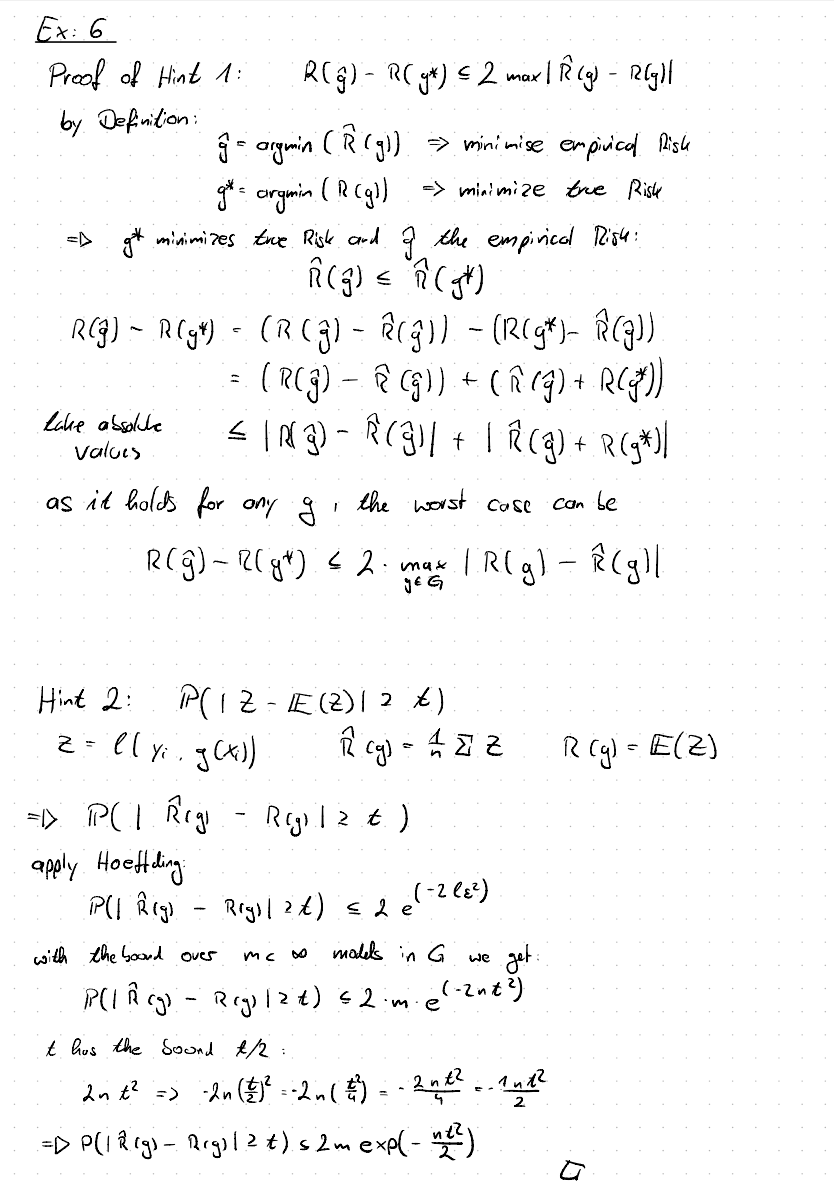 Ex: 6
Proof of Hint 1: R(ĝ) - R(g*) ≤ 2 max | R̂(g) - R(g) |
by Definition:
ĝ = argmin ( R̂(g) ) => minimise empirical Risk
g* = argmin ( R(g) ) => minimize true Risk
=> g* minimizes true Risk and ĝ the empirical Risk:
R̂(ĝ) ≤ R̂(g*)
R(ĝ) - R(g*) = (R(ĝ) - R̂(ĝ)) - (R(g*) - R̂(ĝ))
= (R(ĝ) - R̂(ĝ)) + (R̂(ĝ) + R(g*))
take absolute values ≤ |R(ĝ) - R̂(ĝ)| + |R̂(ĝ) + R(g*)|
as it holds for any g, the worst case can be
R(ĝ) - R(g*) ≤ 2 · max g∈G | R(g) - R̂(g) |
Hint 2: ℙ( | Z - 𝔼(Z) | ≥ t )
Z = l( yi, g(xi)) R̂(g) = 1/n Σ Z R(g) = 𝔼(Z)
=> ℙ( | R̂(g) - R(g) | ≥ t )
apply Hoeffding:
ℙ( | R̂(g) - R(g) | ≥ t ) ≤ 2 e^(-2lε²)
with the bound over m < ∞ models in G we get:
ℙ( | R̂(g) - R(g) | ≥ t ) ≤ 2 · m · e^(-2nt²)
t has the bound t/2:
2nt² => -2n(t/2)² = -2n(t²/4) = - 2nt²/4 = - 1nt²/2
=> P( | R̂(g) - R(g) | ≥ t ) ≤ 2m exp(- nt²/2)
□